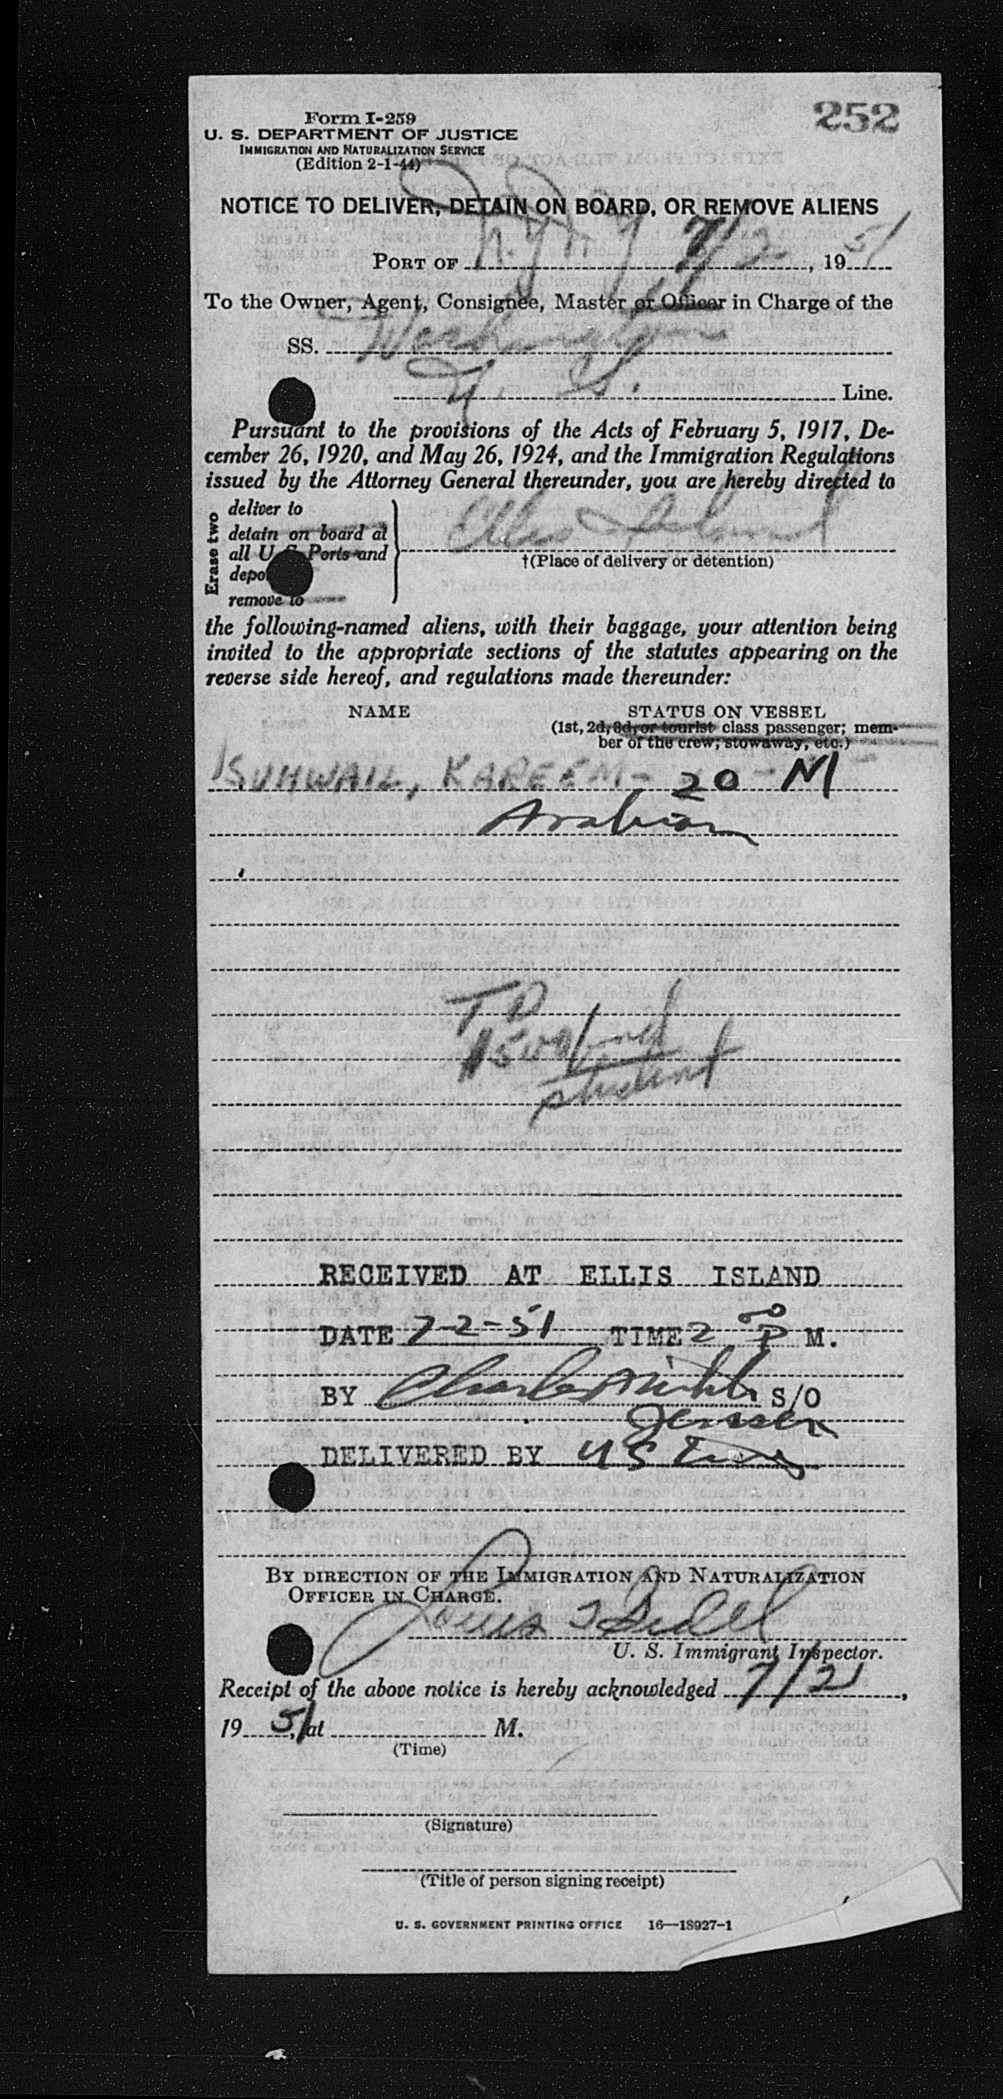 252
Form I-259
U. S. DEPARTMENT OF JUSTICE
IMMIGRATION AND NATURALIZATION SERVICE
(Edition 2-1-44)
NOTICE TO DELIVER, DETAIN ON BOARD, OR REMOVE ALIENS
PORT OF N.Y. N Y 7/2, 1951
To the Owner, Agent, Consignee, Master or Officer in Charge of the
SS. Washington
U. S. Line.
Pursuant to the provisions of the Acts of February 5, 1917, De-
cember 26, 1920, and May 26, 1924, and the Immigration Regulations
issued by the Attorney General thereunder, you are hereby directed to
Erase two
deliver to
detain on board at
all U. S. Ports and
depo
remove to
Ellis Island
†(Place of delivery or detention)
the following-named aliens, with their baggage, your attention being
invited to the appropriate sections of the statutes appearing on the
reverse side hereof, and regulations made thereunder:
NAME STATUS ON VESSEL
(1st, 2d, 3d, or tourist class passenger; mem-
ber of the crew; stowaway, etc.)
SUHWAIL, KAREEM - 20 - M
Arabian
T D
$500 bond
student
RECEIVED AT ELLIS ISLAND
DATE 7-2-51 TIME 2 00 P M.
BY Charles S/O
Jensen
DELIVERED BY U S
BY DIRECTION OF THE IMMIGRATION AND NATURALIZATION
OFFICER IN CHARGE.
Louis
U. S. Immigrant Inspector.
Receipt of the above notice is hereby acknowledged 7/2,
19 51, at M.
(Time)
(Signature)
(Title of person signing receipt)
U. S. GOVERNMENT PRINTING OFFICE 16—18927-1